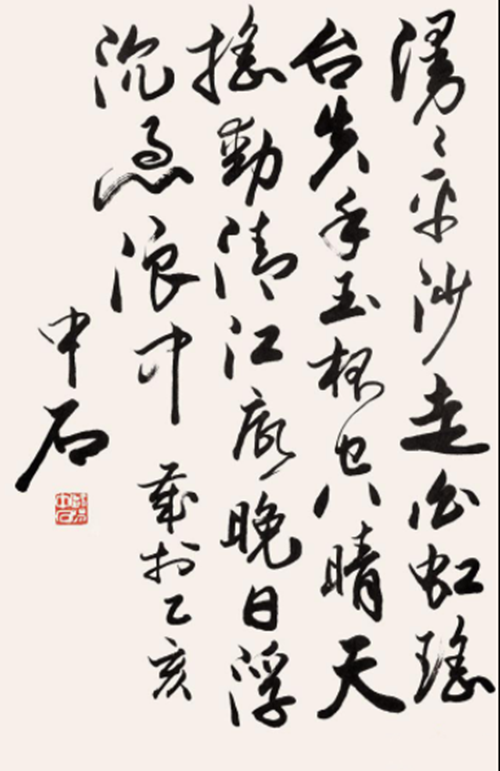 漫々平沙走白虹瑶
台失手玉杯空晴天
摇動清江底晚日浮
沉急浪中 歲於乙亥
中石